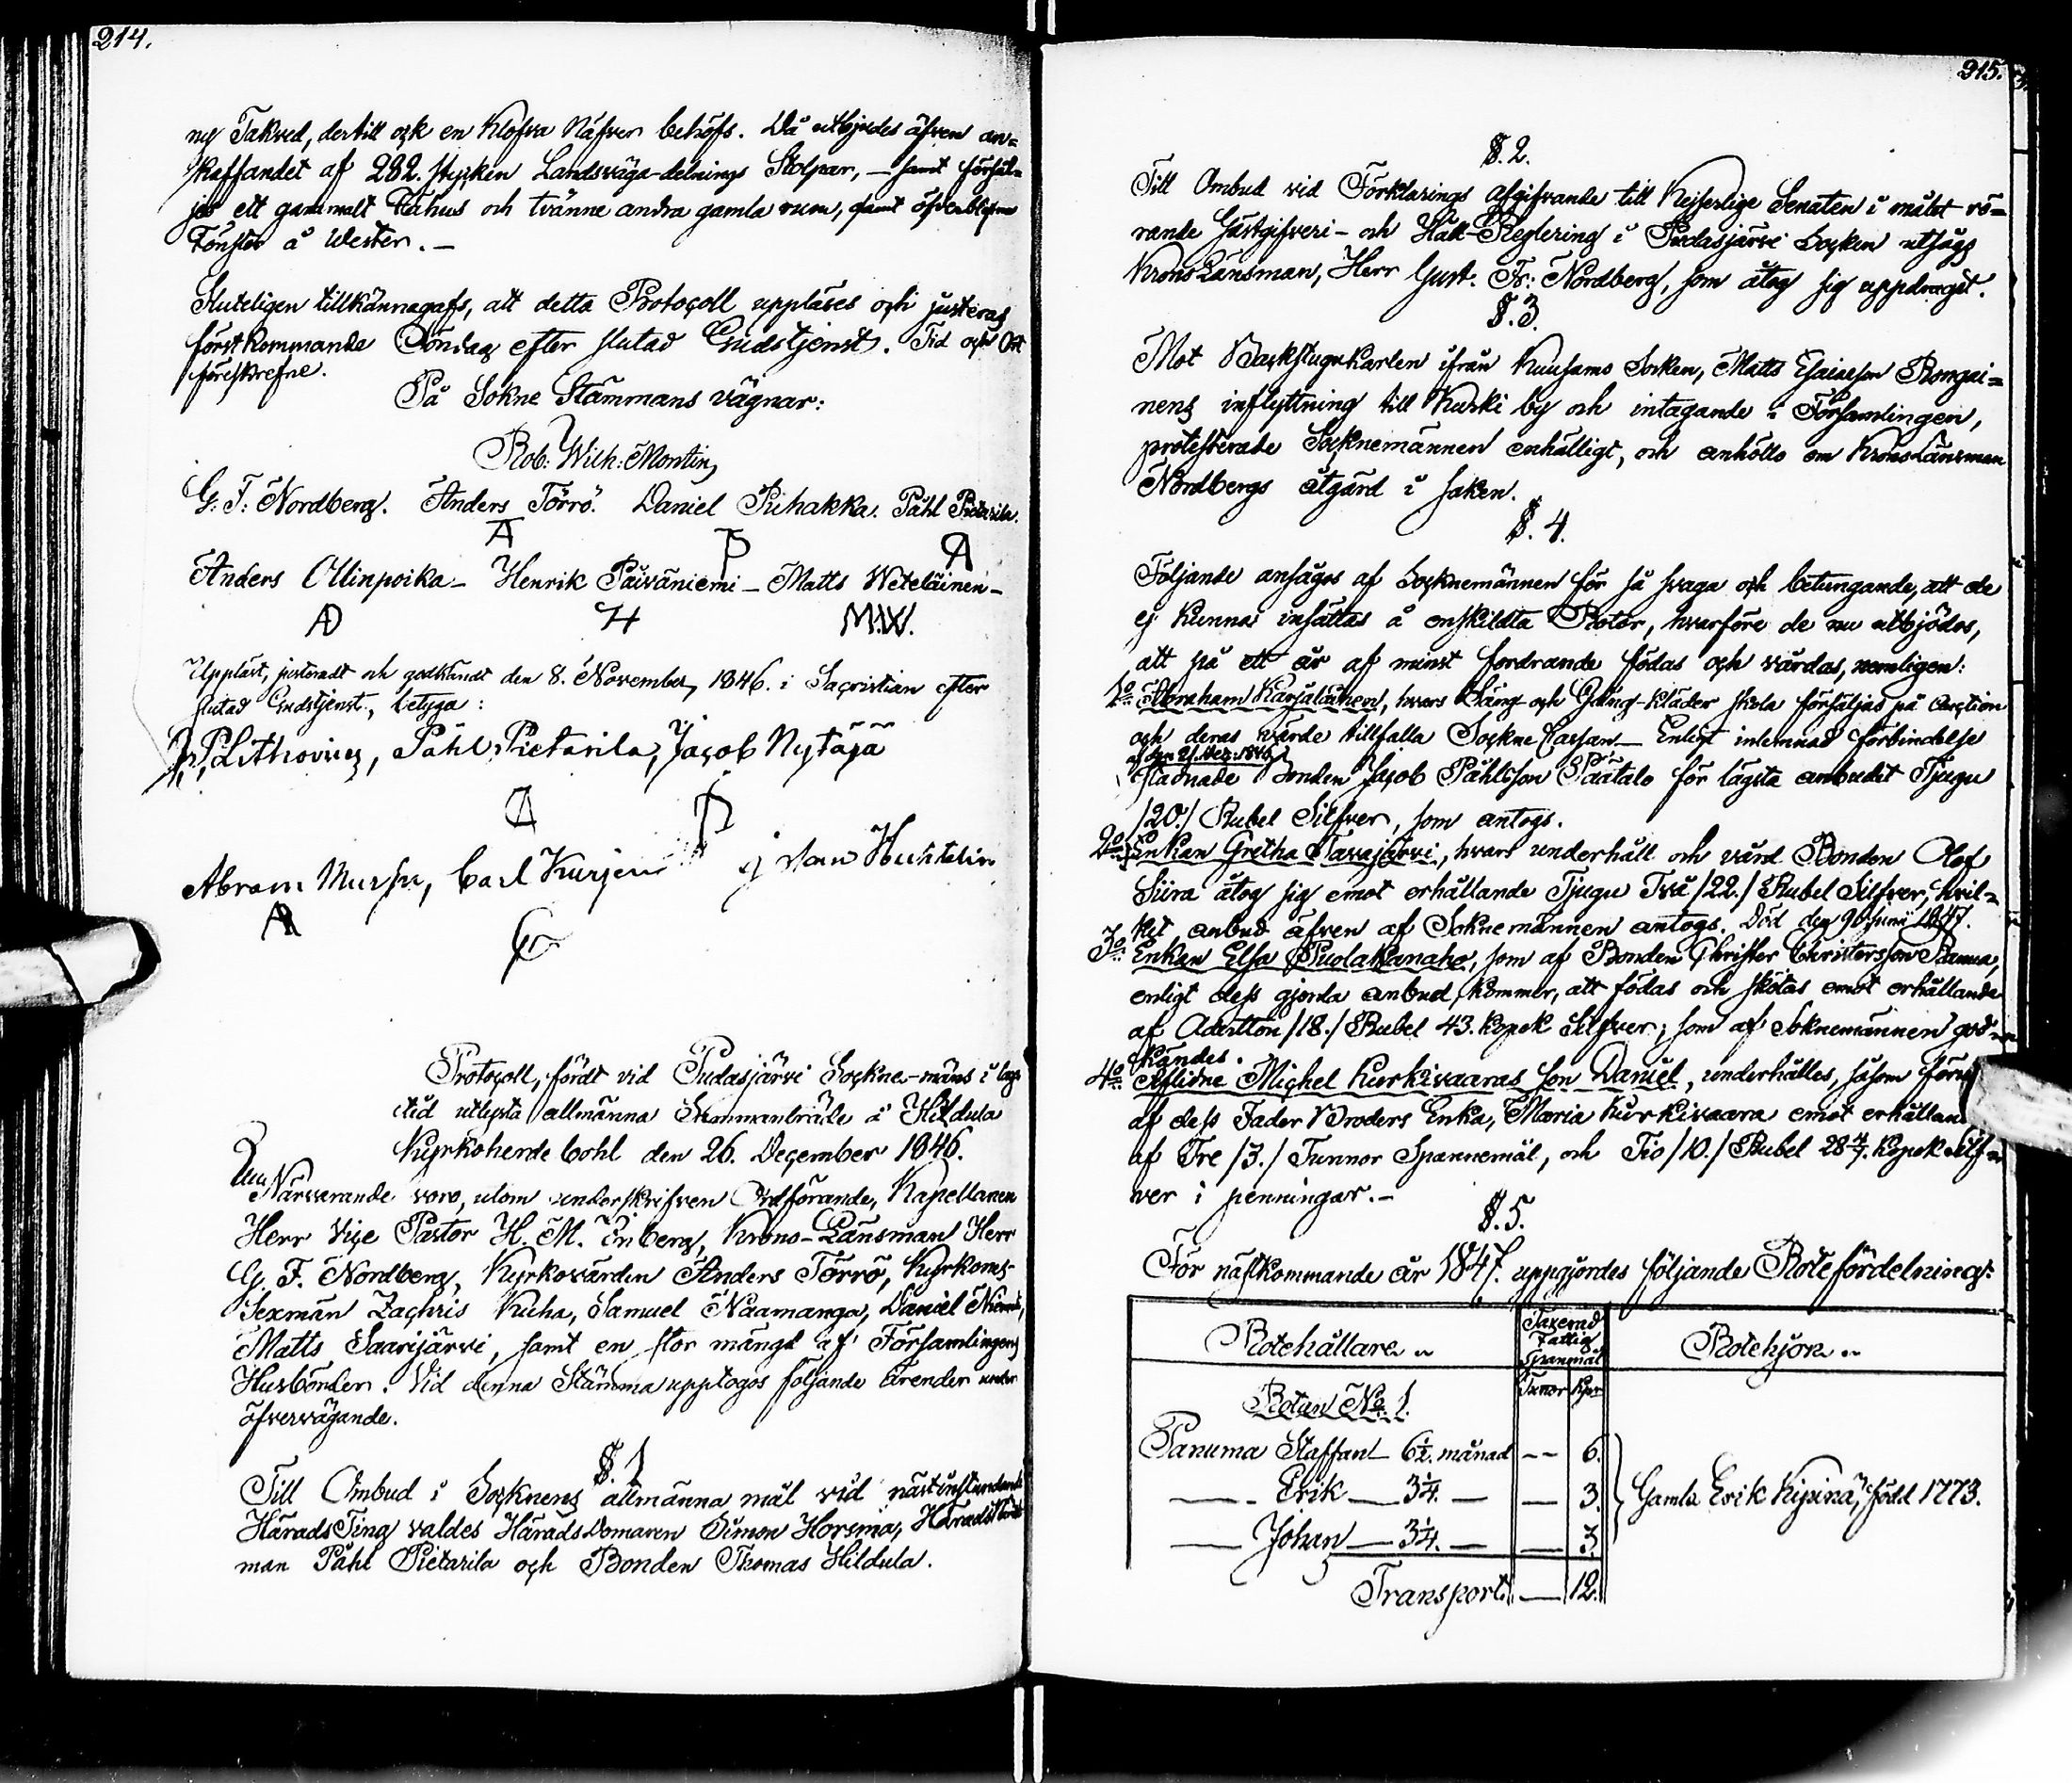 214.
ny Takved, dertill ock en Klofva Näfver behöfs. Då utbjudes äfven an-
skaffandet af 282. stycken Landsväga-delnings Stolpar, — samt försäl-
jes ett gammalt Fähus och tvänne andra gamla rum, samt
Fönster å Westen. —
Sluteligen tillkännagafs, att detta Protocoll uppläses och justeras
förstkommande Söndag efter slutad Gudstjenst. Tid och Ort
föreskrefne.
På Sokne Stämmans vägnar:
Rob: Wilh: Montin,
G. F. Nordberg. Anders Törrö. Daniel Puhakka. Påhl Pietarila.
A P A
Anders Ollinpoika — Henrik Päiväniemi — Matts Weteläinen —
AO H M.W.
Uppläst, justeradt och godkändt den 8. November, 1846. i Sacristian efter
slutad Gudstjenst, betyga:
Påhl Pietarila, Jacob Nytäjä
A P
Abram Carl Johan Huhtelin
A
Protocoll, fördt vid Pudasjärvi Sockne-mäns i lag-
tid utlysta allmänna Sammanträde å Hildula
Kyrkoherde bohl den 26. December 1846.
Närvarande voro, utom underskrifven Ordförande, Kapellanen
Herr Vice Pastor H. M. Enberg, Krono-Länsman Herr
G. F. Nordberg, Kyrkovärden Anders Törrö, Kyrkones
Sexmän Zachris Kuha, Samuel Naamanga, Daniel
Matts Saarijärvi, samt en stor mängd af Församlingens
Husbönder. Vid denna Stämma upptogos följande ärender under
öfvervägande.
§. 1
Till Ombud i Socknens allmänna mål vid nästinstundande
HäradsTing valdes HäradsDomaren Simon Horsma, Häradsnämde
man Påhl Pietarila och Bonden Thomas Hildula.
215.
§. 2.
Till Ombud vid Förklarings afgifvande till Kejserlige Senaten i målet rö-
rande Gästgifveri- och Håll-Reglering i Pudasjärvi Socken utsågs
KronoLänsman, Herr Gust. Fr: Nordberg, som åtog sig uppdraget.
§. 3.
Mot Backstugukarlen ifrån Kuusamo Socken, Matts Esaiasson Rongai-
nens inflyttning till Kurki by och intagande i Församlingen,
protesterade Socknemännen enhälligt, och anhöllo om KronoLänsman
Nordbergs åtgärd i saken.
§. 4.
Följande ansågos af Socknemännen för så svaga och betungande, att de
ej kunna insättas å enskildta Rotor, hvarföre de nu utbjödos,
att på ett år af minst fordrande födas och vårdas, nemligen:
1o Abraham Karjalainen, hvars Säng- och Gång-kläder skola försäljas på Auction
och deras värde tillfalla Sockne Cassan — Enligt inlemnad förbindelse
af den 21. Dec. 1846
stadnade Bonden Jacob Påhlsson Päätalo för lägsta anbudet Tjugu
/20./ Rubel Silfver, som antogs.
2o Enkan Gretha Tavajärvi, hvars underhåll och vård Bonden Olof
Siira åtog sig emot erhållande Tjugu Två /22./ Rubel Silfver, hvil-
ket anbud äfven af Soknemännen antogs. Död den 9 Junii 1847.
3o Enkan Elsa Puolakanaho, som af Bonden Christer Christersson
enligt dess gjorda anbud, kommer, att födas och skötas emot erhållande
af Aderton /18./ Rubel 43. Kopek Silfver; som af Soknemännen god-
kändes.
4o Aflidne Michel Kurkivaaras Son Daniel, underhålles, såsom förut
af dess Fader Broders Enka, Maria Kurkivaara emot erhålland
af Tre /3./ Tunnor Spannemål, och Tio /10./ Rubel 28 4/7. Kopek Silf-
ver i penningar. —
§. 5.
För nästkommande år 1847. uppgjordes följande Rotefördelning:
Rotehållare Taxerad Fattig Spanmål Rotehjon
Tunnor Kpr
Rotan No. 1.
Panuma Staffan — 6½ månad — 6.
— Erik — 3¼ — — 3. Gamla Erik Kipinä, född 1773.
— Johan — 3¼ — — 3.
Transport. — 12.